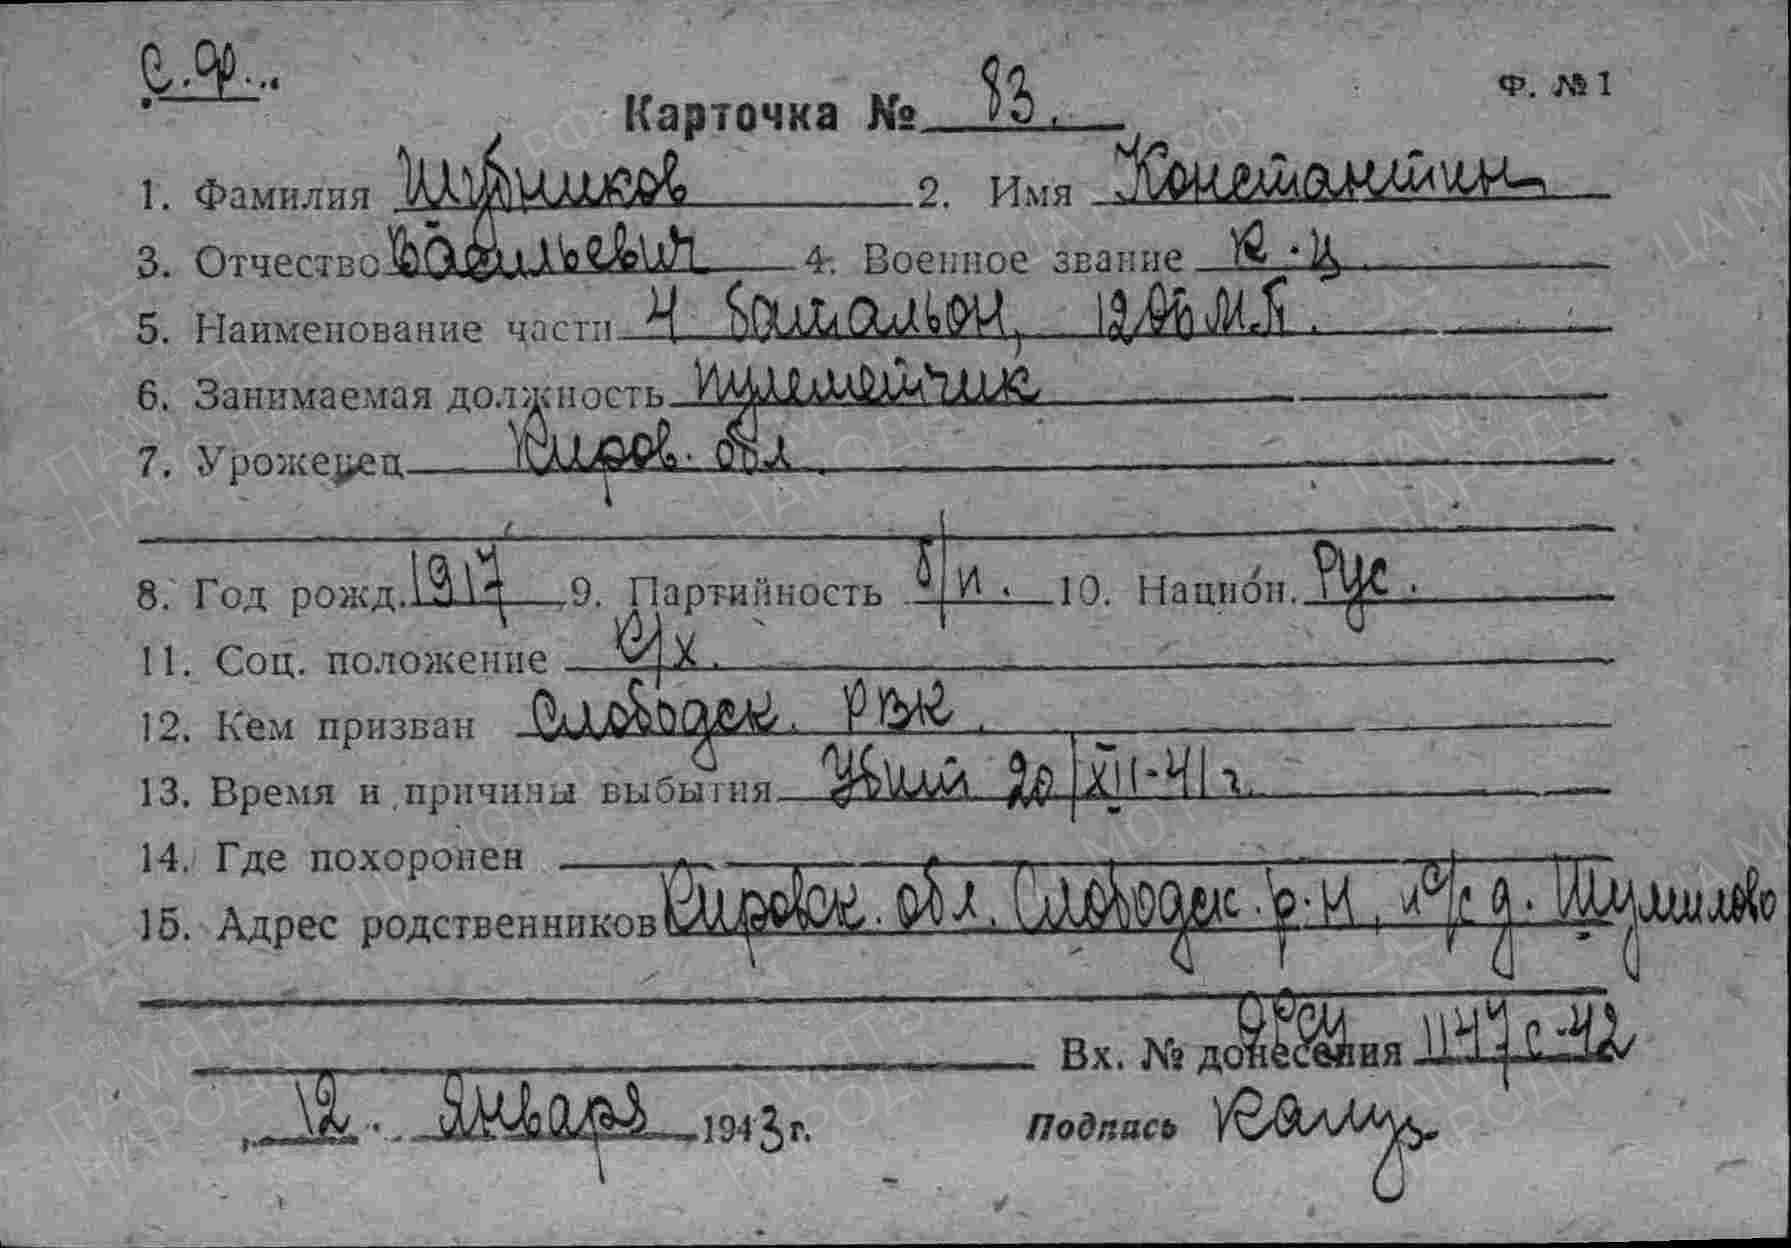 С.Ф...
Ф. №1
Карточка № 83.
1. Фамилия Шубников 2. Имя Константин
3. Отчество Васильевич 4. Военное звание к-ц
5. Наименование части 4 батальон, 12 ОБМП.
6. Занимаемая должность пулеметчик
7. Уроженец Киров. обл.
8. Год рожд. 1917 9. Партийность б/п. 10. Национ. Рус.
11. Соц. положение с/х.
12. Кем призван Слободск. РВК.
13. Время и причины выбытия Убит 20/XII-41 г.
14. Где похоронен
15. Адрес родственников Кировск. обл. Слободск. р-н, с/с д. Шумилово
Вх. № донесения 1147с-42
12. Января 1943 г. Подпись